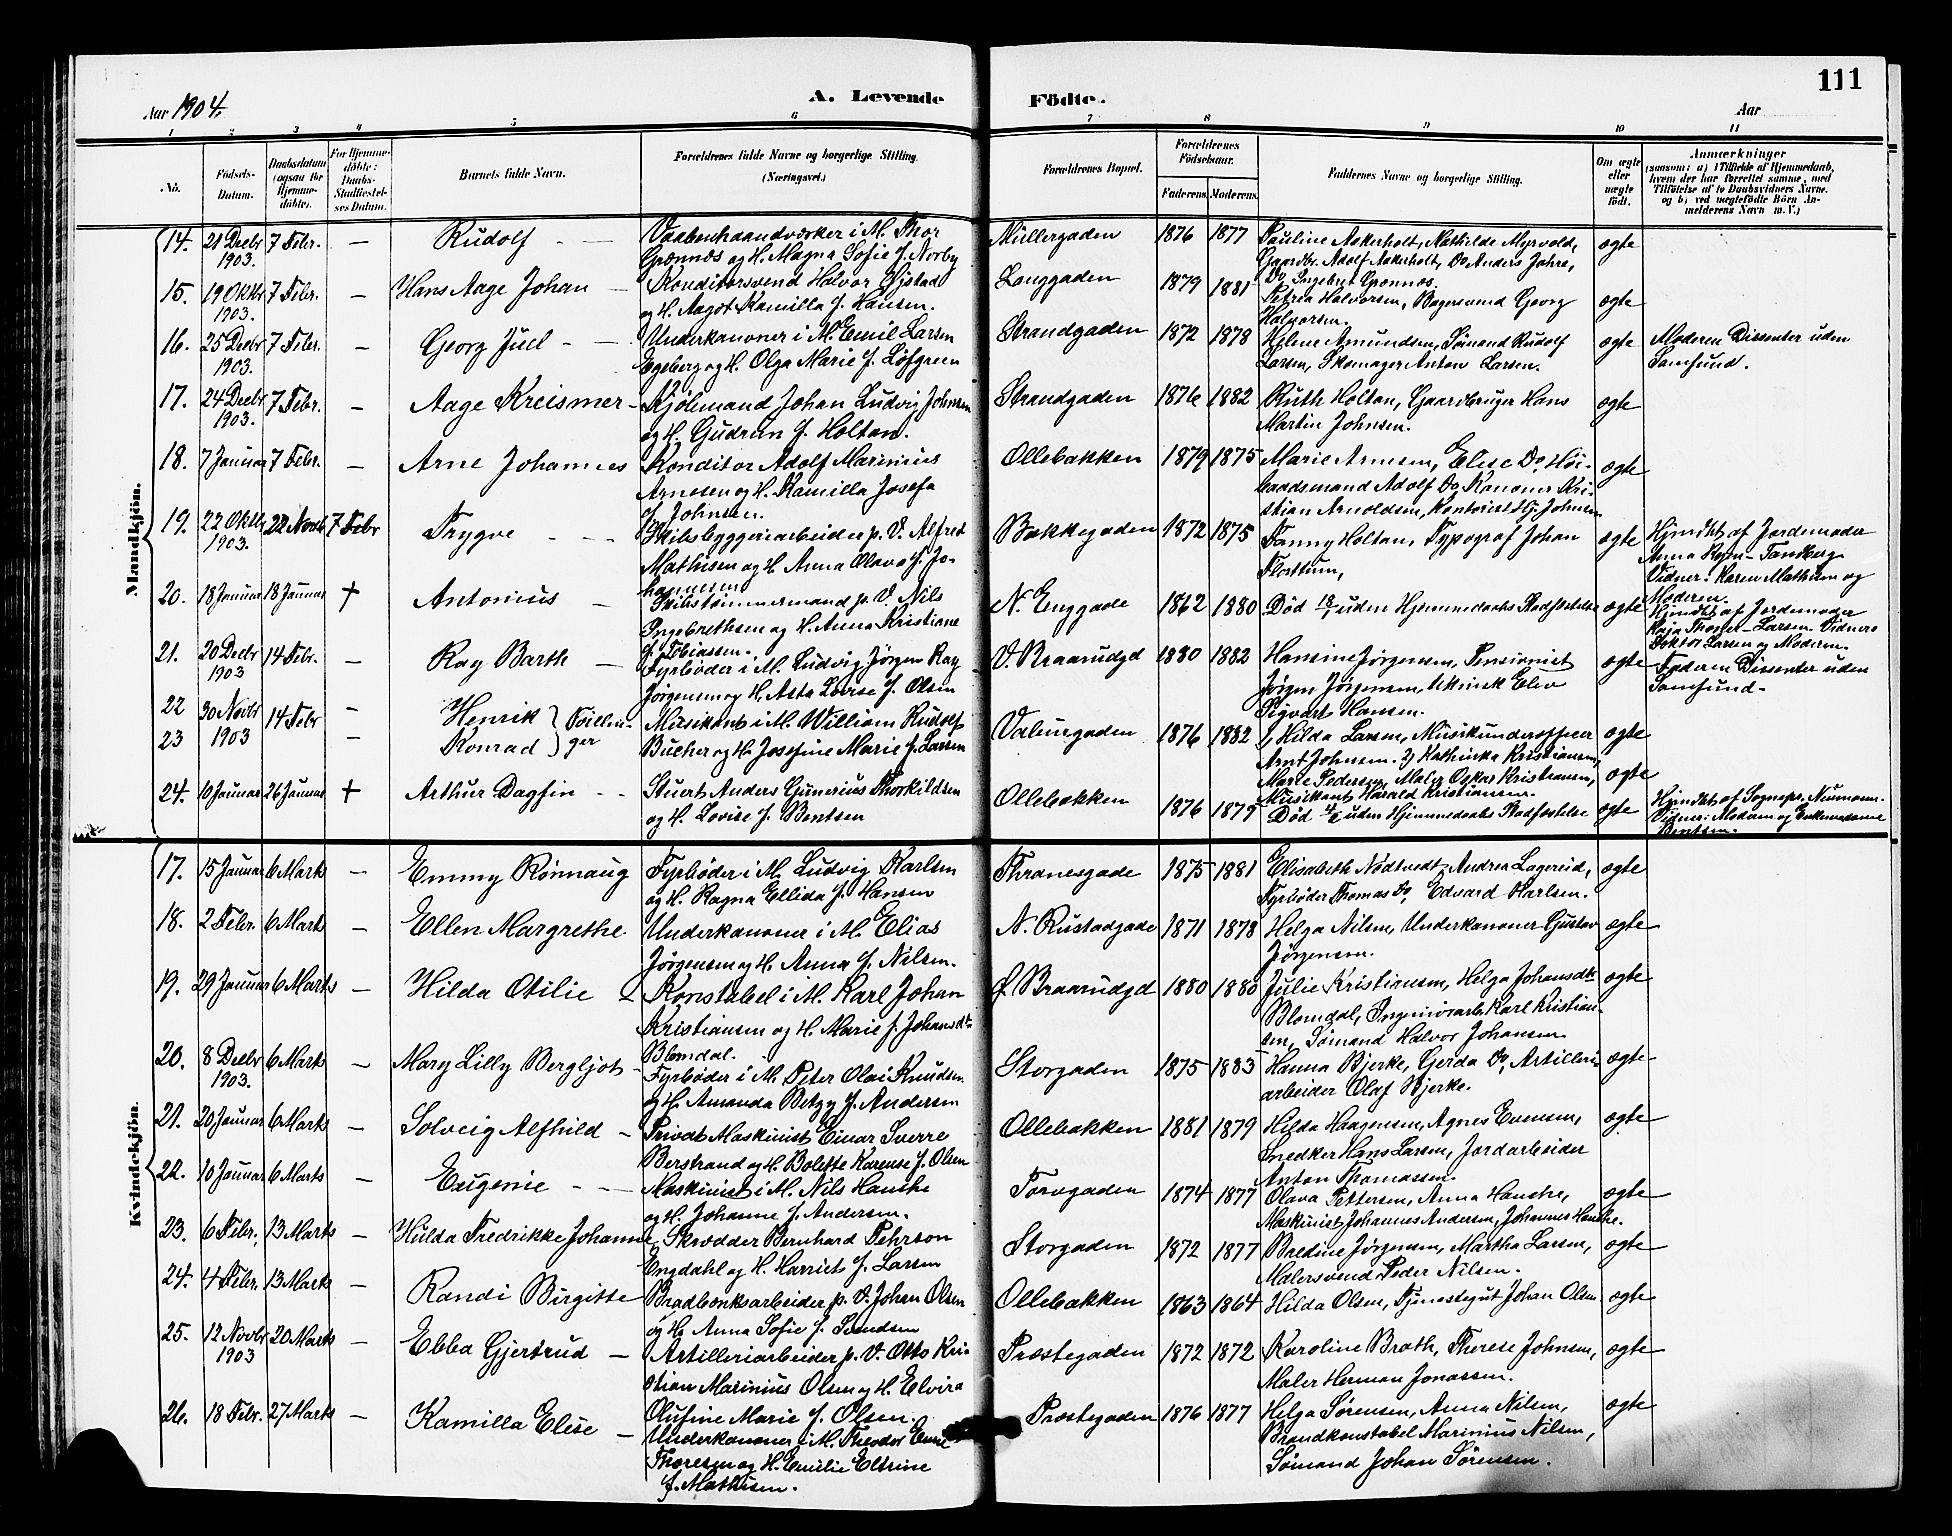 111
Aar 1904.
A. Levende Födte.
Aar
1 2 3 4 5 6 7 8 9 10 11
No.
Födsels-Datum.
Daabsdatum (ogsaa for Hjemme-döbte).
For Hjemme-döbte: Daabs-Stadfæstel-ses Datum.
Barnets fulde Navn.
Forældrenes fulde Navne og borgerlige Stilling. (Næringsvei.)
Forældrenes Bopæl.
Forældrenes Födselsaar.
Faderens. Moderens.
Faddernes Navne og borgerlige Stilling.
Om ægte eller uægte födt.
Anmærkninger
(saasom: a) i Tilfælde af Hjemmedaab, hvem der har forrettet samme, med Tilföielse af to Daabsvidners Navne. og b) ved uægtefödte Börn An-melderens Navn m. V.)
Mandkjön.
14. 21 Decbr 1903. 7 Febr. — Rudolf - — Vaabenhaandværker i M. Thor
Grønnæs og H. Magna Sofie f. Norby
Müllergaden 1876 1877 Pauline Aakerholt, Mathilde Myrvold,
Gaardbr. Adolf Aakerholt, Do Anders Johre,
Do Ingebret Grønnæs. ægte
15. 19 Oktbr 1903. 7 Febr. — Hans Aage Johan — Konditorsvend Halvor Øistad
og H. Aagot Kamilla f. Hansen.
Langgaden 1879 1881 Petrea Halvorsen, Bagersvend Georg
Halvorsen. ægte
16. 25 Decbr 1903. 7 Febr. — Georg Juel - — Underkanoner i M. Emil Larsen
Egeberg og H. Olga Marie f. Løfgreen
Strandgaden 1872 1878 Helene Amundsen, Sømand Rudolf
Larsen, Skomager Anton Larsen. ægte Moderen Dissenter uden
Samfund.
17. 24 Decbr 1903. 7 Febr. — Aage Kreismer — Kjølemand Johan Ludvig Johnsen
og H. Gudrun f. Holtan.
Strandgaden 1876 1882 Ruth Holtan, Gaardbruger Hans
Martin Johnsen. ægte
18. 7 Januar 7 Febr. — Arne Johannes Konditor Adolf Marinius
Arnesen og H. Kamilla Josefa
f. Johnsen.
Ollebakken 1879 1875 Marie Arnesen, Elise Do Høi-
baadsmand Adolf Do Kanoner Kri-
stian Arnoldsen, Kontorist Hj. Johnsen ægte
19. 22 Oktbr 1903. 22 Novb. 7 Febr Trygve - — Skibsbyggeriarbeider p. V. Alfred
Mathisen og H. Anna Olava f. Jo-
hannesen
Bakkegaden 1872 1875 Fanny Holtan, Typograf Johan
Flottum, ægte Hjmdbt af Jordemoder
Anna Ryen-Tandberg
Vidner: Karen Mathisen og
Moderen.
20. 18 Januar 18 Januar + Antonius — Skibstømmermand p. V. Nils
Ingebrethsen og H. Anna Kristiane
f. Tobiassen.
N. Enggade 1862 1880 Død 18/1 uden Hjemmedaabs Stadfæstelse ægte Hjmdbt af Jordemoder
Kaja Thoner-Larsen. Vidner:
Doktor Larsen og Moderen.
21. 20 Decbr 1903 14 Febr. — Ray Barth — Fyrbøder i M. Ludvig Jørgen Ray
Jørgensen og H. Asta Lovise f. Olsen
V. Braarudgd 1880 1882 Hansine Jørgensen, Pensionist
Jørgen Jørgensen, teknisk Elev
Sigvart Hansen. ægte Faderen Dissenter uden
Samfund.
22 23 30 Novbr 1903 14 Febr — Henrik Konrad } Tvillin-ger Musikant i M. William Rudolf
Bucher og H. Josefine Marie f. Larsen
Valeurgaden 1876 1882 1, Hilda Larsen, Musikunderofficer
Arnt Johnsen. 2, Kathinka Kristiansen,
Marie Pedersen, Maler Oskar Kristiansen,
Musikant Harald Kristiansen. ægte ægte
24. 10 Januar 26 Januar + Arthur Dagfin - - Stuert Anders Gunerius Thorkildsen
og H. Lovise f. Bentsen
Ollebakken 1876 1877 Død uden Hjemmedaabs Stadfæstelse ægte Hjmdbt af Sognepr. Neumann.
Vidner: Moderen og Enkemadame
Bentsen.
Kvindekjön.
17. 15 Januar 6 Marts — Emmy Rønnaug Fyrbøder i M. Ludvig Karlsen
og H. Ragna Ellida f. Hansen
Thranesgade 1875 1881 Elisabeth Nødtvedt, Andrea Lagerud,
Fyrbøder Thomas Do, Edvard Karlsen. ægte
18. 2 Febr. 6 Marts — Ellen Margrethe Underkanoner i M. Elias
Jørgensen og H. Anna f. Nilsen.
N. Rustadgade 1871 1878 Helga Nilsen, Underkanoner Gustav
Jørgensen. ægte
19. 29 Januar 6 Marts — Hilda Otilie — Konstabel i M. Karl Johan
Kristiansen og H. Marie f. Johansdtr
Blomdal.
f. Braarudgd 1880 1880 Julie Kristiansen, Helga Johansdtr
Blomdal, Ingeniørarb. Karl Kristian-
sen, Sømand Halvor Johansen ægte
20. 8 Decbr 1903. 6 Marts — Mary Lilly Bergljot - Fyrbøder i M. Peter Olai Knudsen
og H. Amanda Betzy f. Andersen
Storgaden 1875 1883 Hanna Bjerke, Gerda Do, Artilleri-
arbeider Olaf Bjerke. ægte
21. 20 Januar 6 Marts — Solveig Alfhild — Privat Maskinist Einar Sverre
Berstrand og H. Bolette Karense f. Olsen
Ollebakken 1881 1879 Hilda Haagensen, Agnes Evensen,
Snedker Hans Larsen, Jordarbeider
Anton Thomassen. ægte
22. 10 Januar 6 Marts — Eugenie - — Maskinist i M. Nils Hanche
og H. Johanne f. Andersen.
Torvgaden 1874 1877 Olava Pettersen, Anna Hanche,
Maskinist Johannes Andersen, Johannes Hanche. ægte
23. 6 Febr. 13 Marts — Hulda Fredrikke Johanne Skrædder Bernhard Pehrson
Engdahl og H. Harriet f. Larsen
Storgaden 1872 1877 Baldine Jørgensen, Martha Larsen,
Malersvend Peder Nilsen. ægte
24. 4 Febr. 13 Marts — Randi Birgitte Bradbænksarbeider p. V. Johan Olsen
og H. Anna Sofie f. Svendsen
Ollebakken 1863 1864 Hilda Olsen, Tjenestegut Johan Olsen ægte
25. 12 Novbr 1903 20 Marts — Ebba Gjertrud — Artilleriarbeider p. V. Otto Kri-
stian Marinius Olsen og H. Elvira
Olufine Marie f. Olsen
Præstegaden 1872 1872 Karoline Bråth, Therese Johnsen,
Maler Herman Jonassen. ægte
26. 18 Febr. 27 Marts — Kamilla Elise — Underkanoner i M. Theodor Emil
Thoresen og H. Emilie Eltrine
f. Mathisen.
Præstegaden 1876 1877 Helga Sørensen, Anna Nilsen,
Brandkonstabel Marinius Nilsen,
Sømand Johan Sørensen. ægte